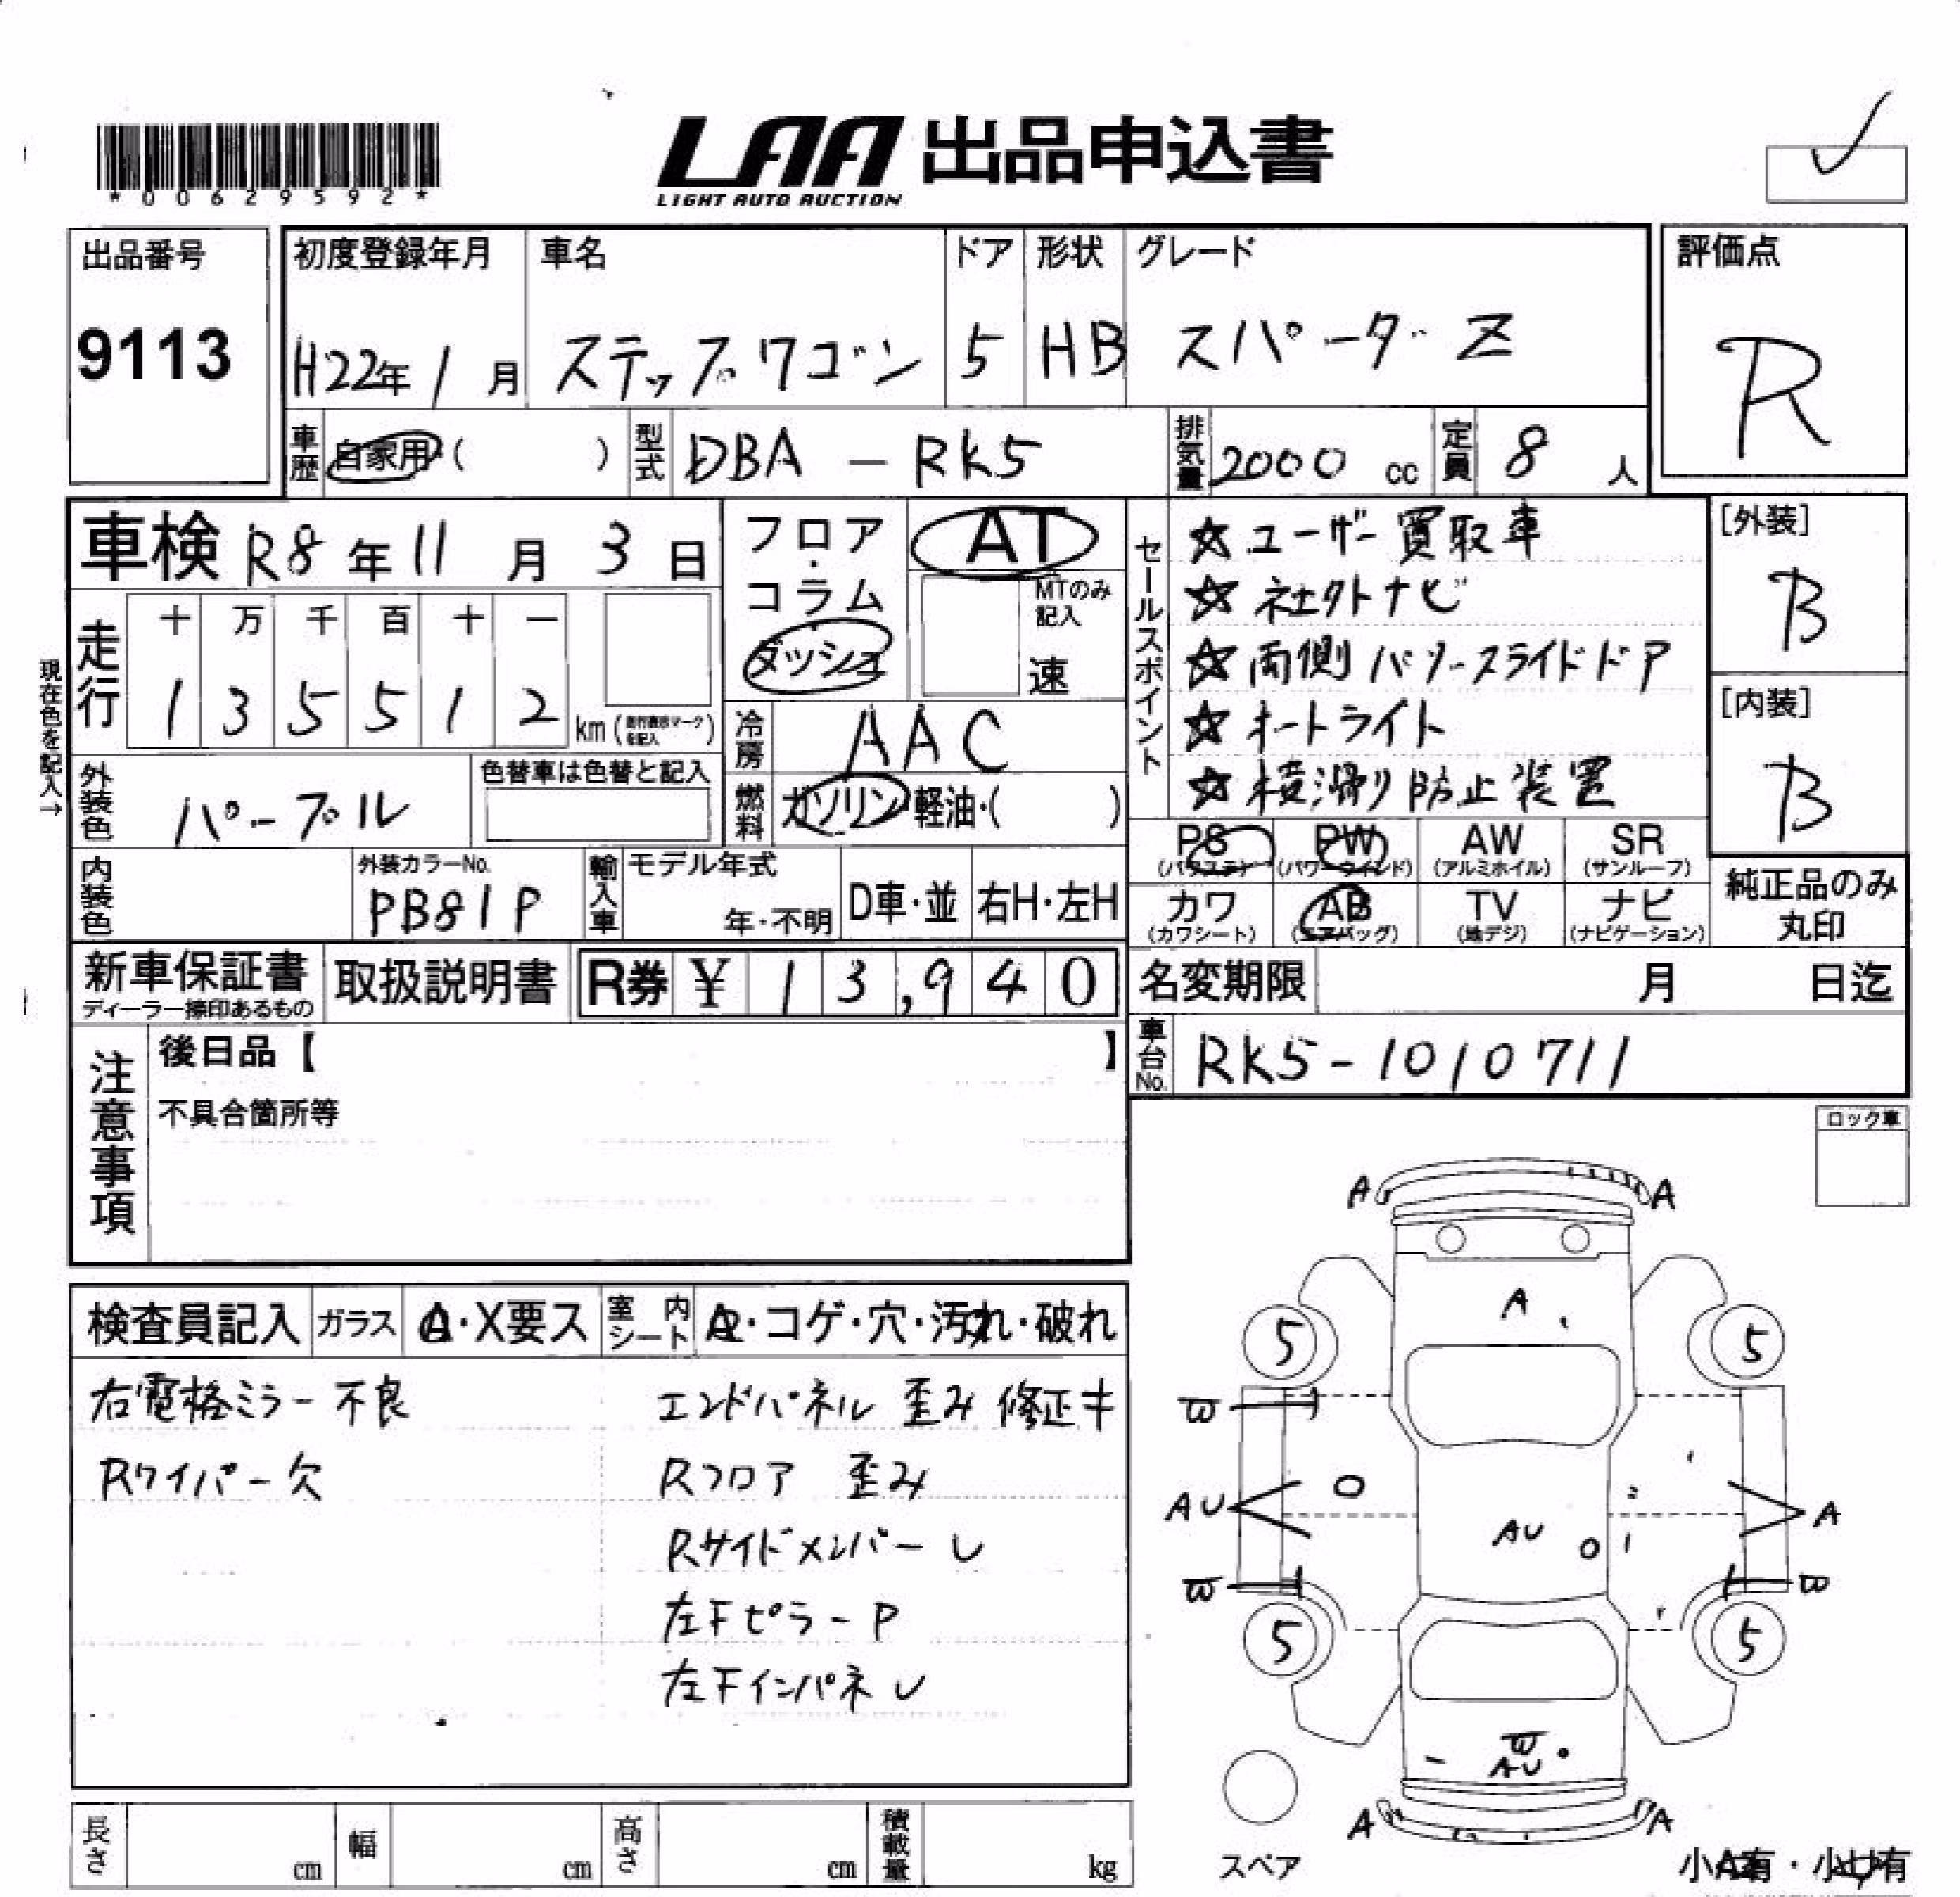 *00629592*
LAA 出品申込書
LIGHT AUTO AUCTION
出品番号
9113
初度登録年月
H22年 1月
車名
ステップワゴン
ドア
5
形状
HB
グレード
スパーダ Z
評価点
R
車歴 自家用・( )
型式 DBA-RK5
排気量 2000 cc
定員 8人
車検 R8年11月3日
現在色を記入→
走行
十 万 千 百 十 一
1 3 5 5 1 2 km
外装色 パープル
色替車は色替と記入
内装色
外装カラーNo.
PB81P
輸入車
モデル年式
年・不明
D車・並
右H・左H
フロア・コラム・ダッシュ
AT
MTのみ記入
速
冷房 AAC
燃料 ガソリン・軽油・( )
セールスポイント
☆ユーザー買取車
☆社外ナビ
☆両側パワースライドドア
☆オートライト
☆横滑り防止装置
[外装]
B
[内装]
B
PS PW AW SR
(パワステ) (パワーウィンド) (アルミホイル) (サンルーフ)
カワ AB TV ナビ
(カワシート) (エアバッグ) (地デジ) (ナビゲーション)
純正品のみ
丸印
新車保証書
ディーラー捺印あるもの
取扱説明書
R券 ¥ 13,940
名変期限 月 日迄
車台No. RK5-1010711
注意事項
後日品【 】
不具合箇所等
ロック車
検査員記入
ガラス
A・X要ス
室内シート
コゲ・穴・汚れ・破れ
右電格ミラー不良
Rワイパー欠
エンドパネル 歪み 修正キ
Rフロア 歪み
Rサイドメンバー U
左Fピラー P
左Fインパネ U
A A
A
5 5
W
AU AU A
W W
5 5
W
AU
A A
スペア
小A有・小U有
長さ cm
幅 cm
高さ cm
積載量 kg